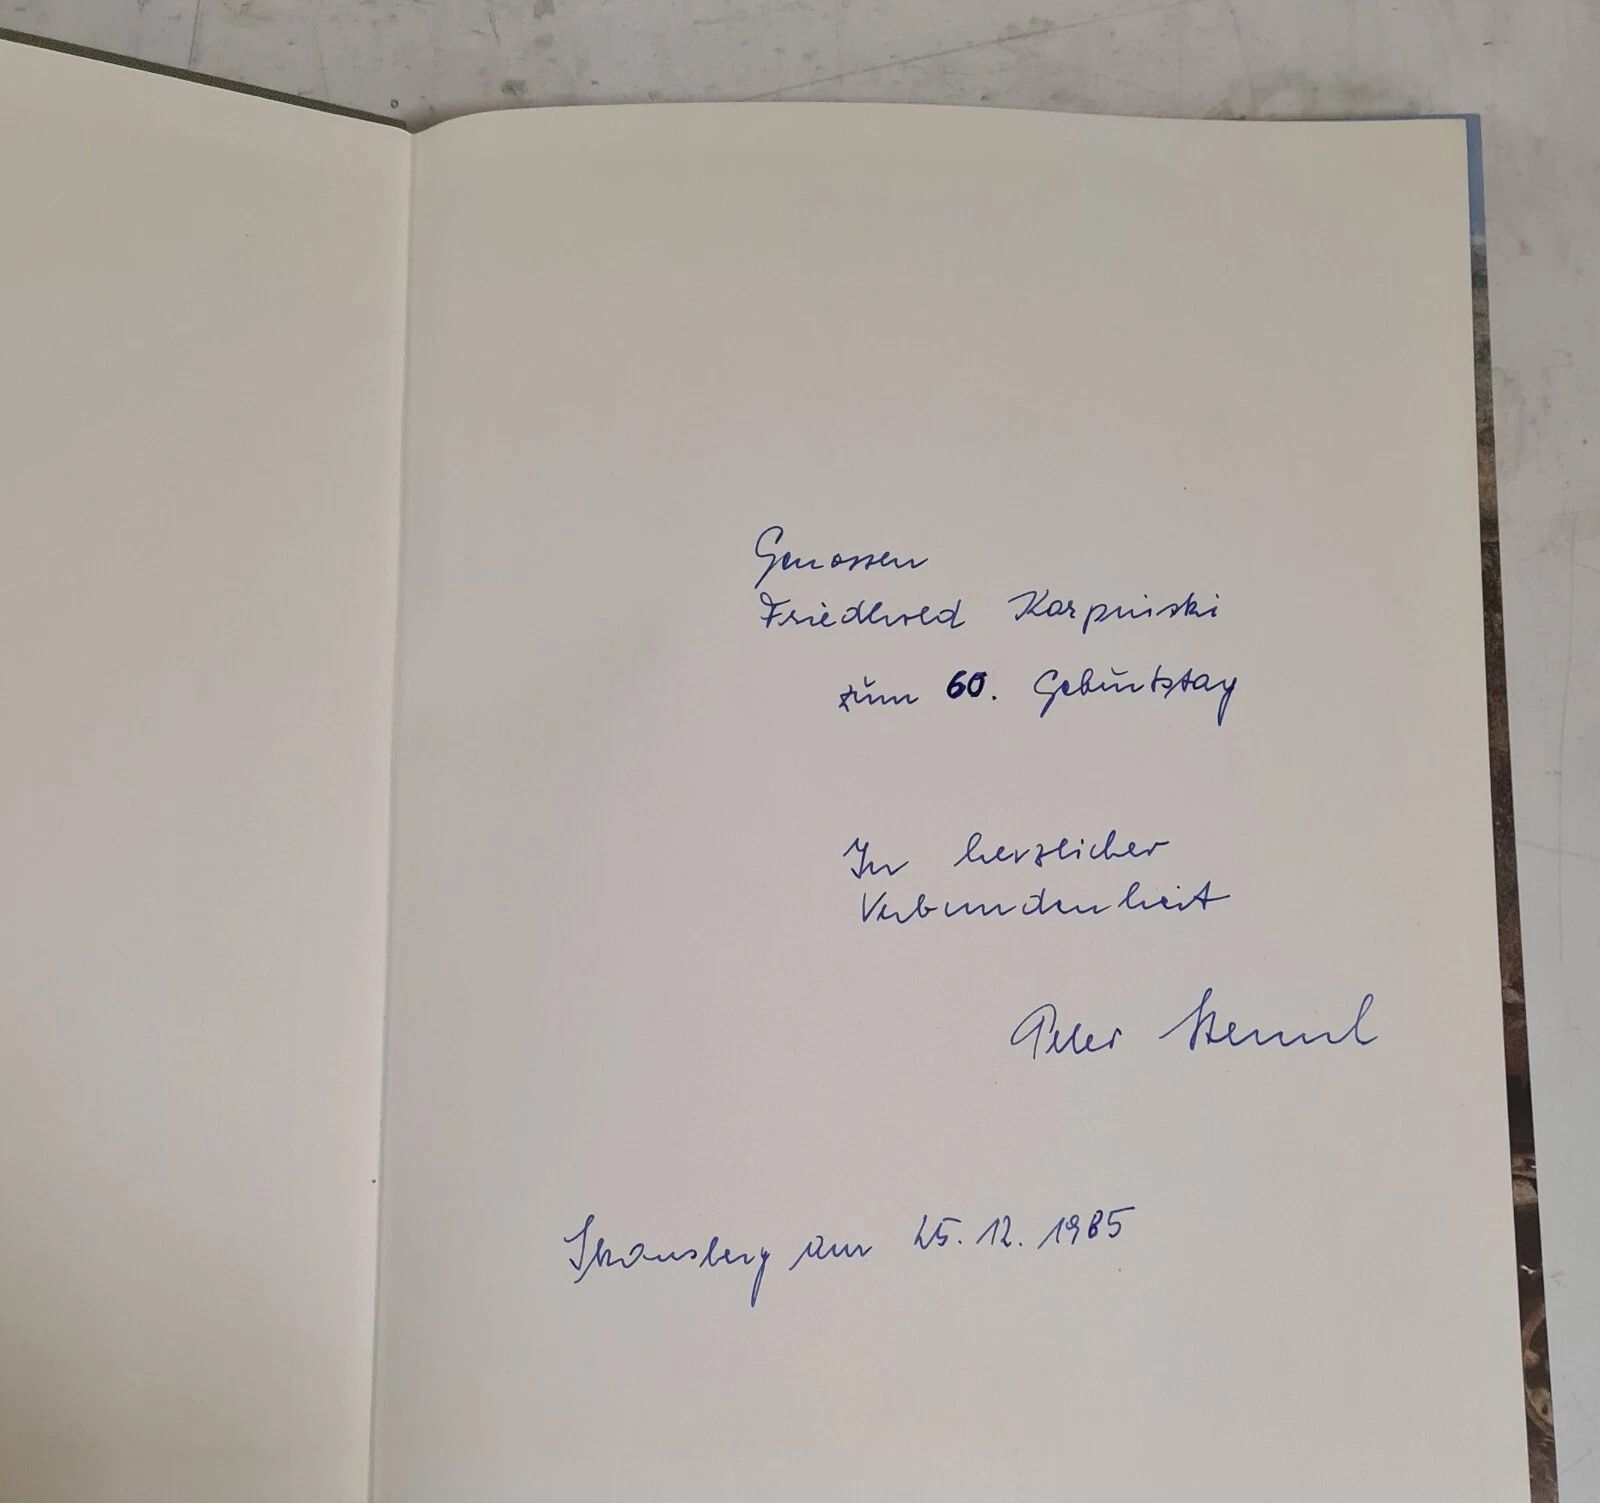 Genossen
Friedhold Karpinski
zum 60. Geburtstag
In herzlicher
Verbundenheit
Peter
Strausberg am 25.12.1985